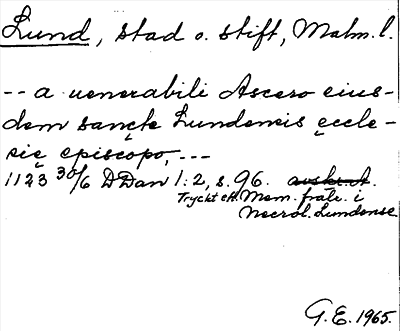 Lund, stad o. stift, Malm. l.
-- a uenerabili Ascero eius-
dem sancte̜ Lundensis e̜ccle-
sie̜ episcopo, ---
1123 30/6 DDan 1:2, s. 96. avskr. A.
Tryckt eft. Mem. fratr. i
Necrol. Lundense
G. E. 1965.